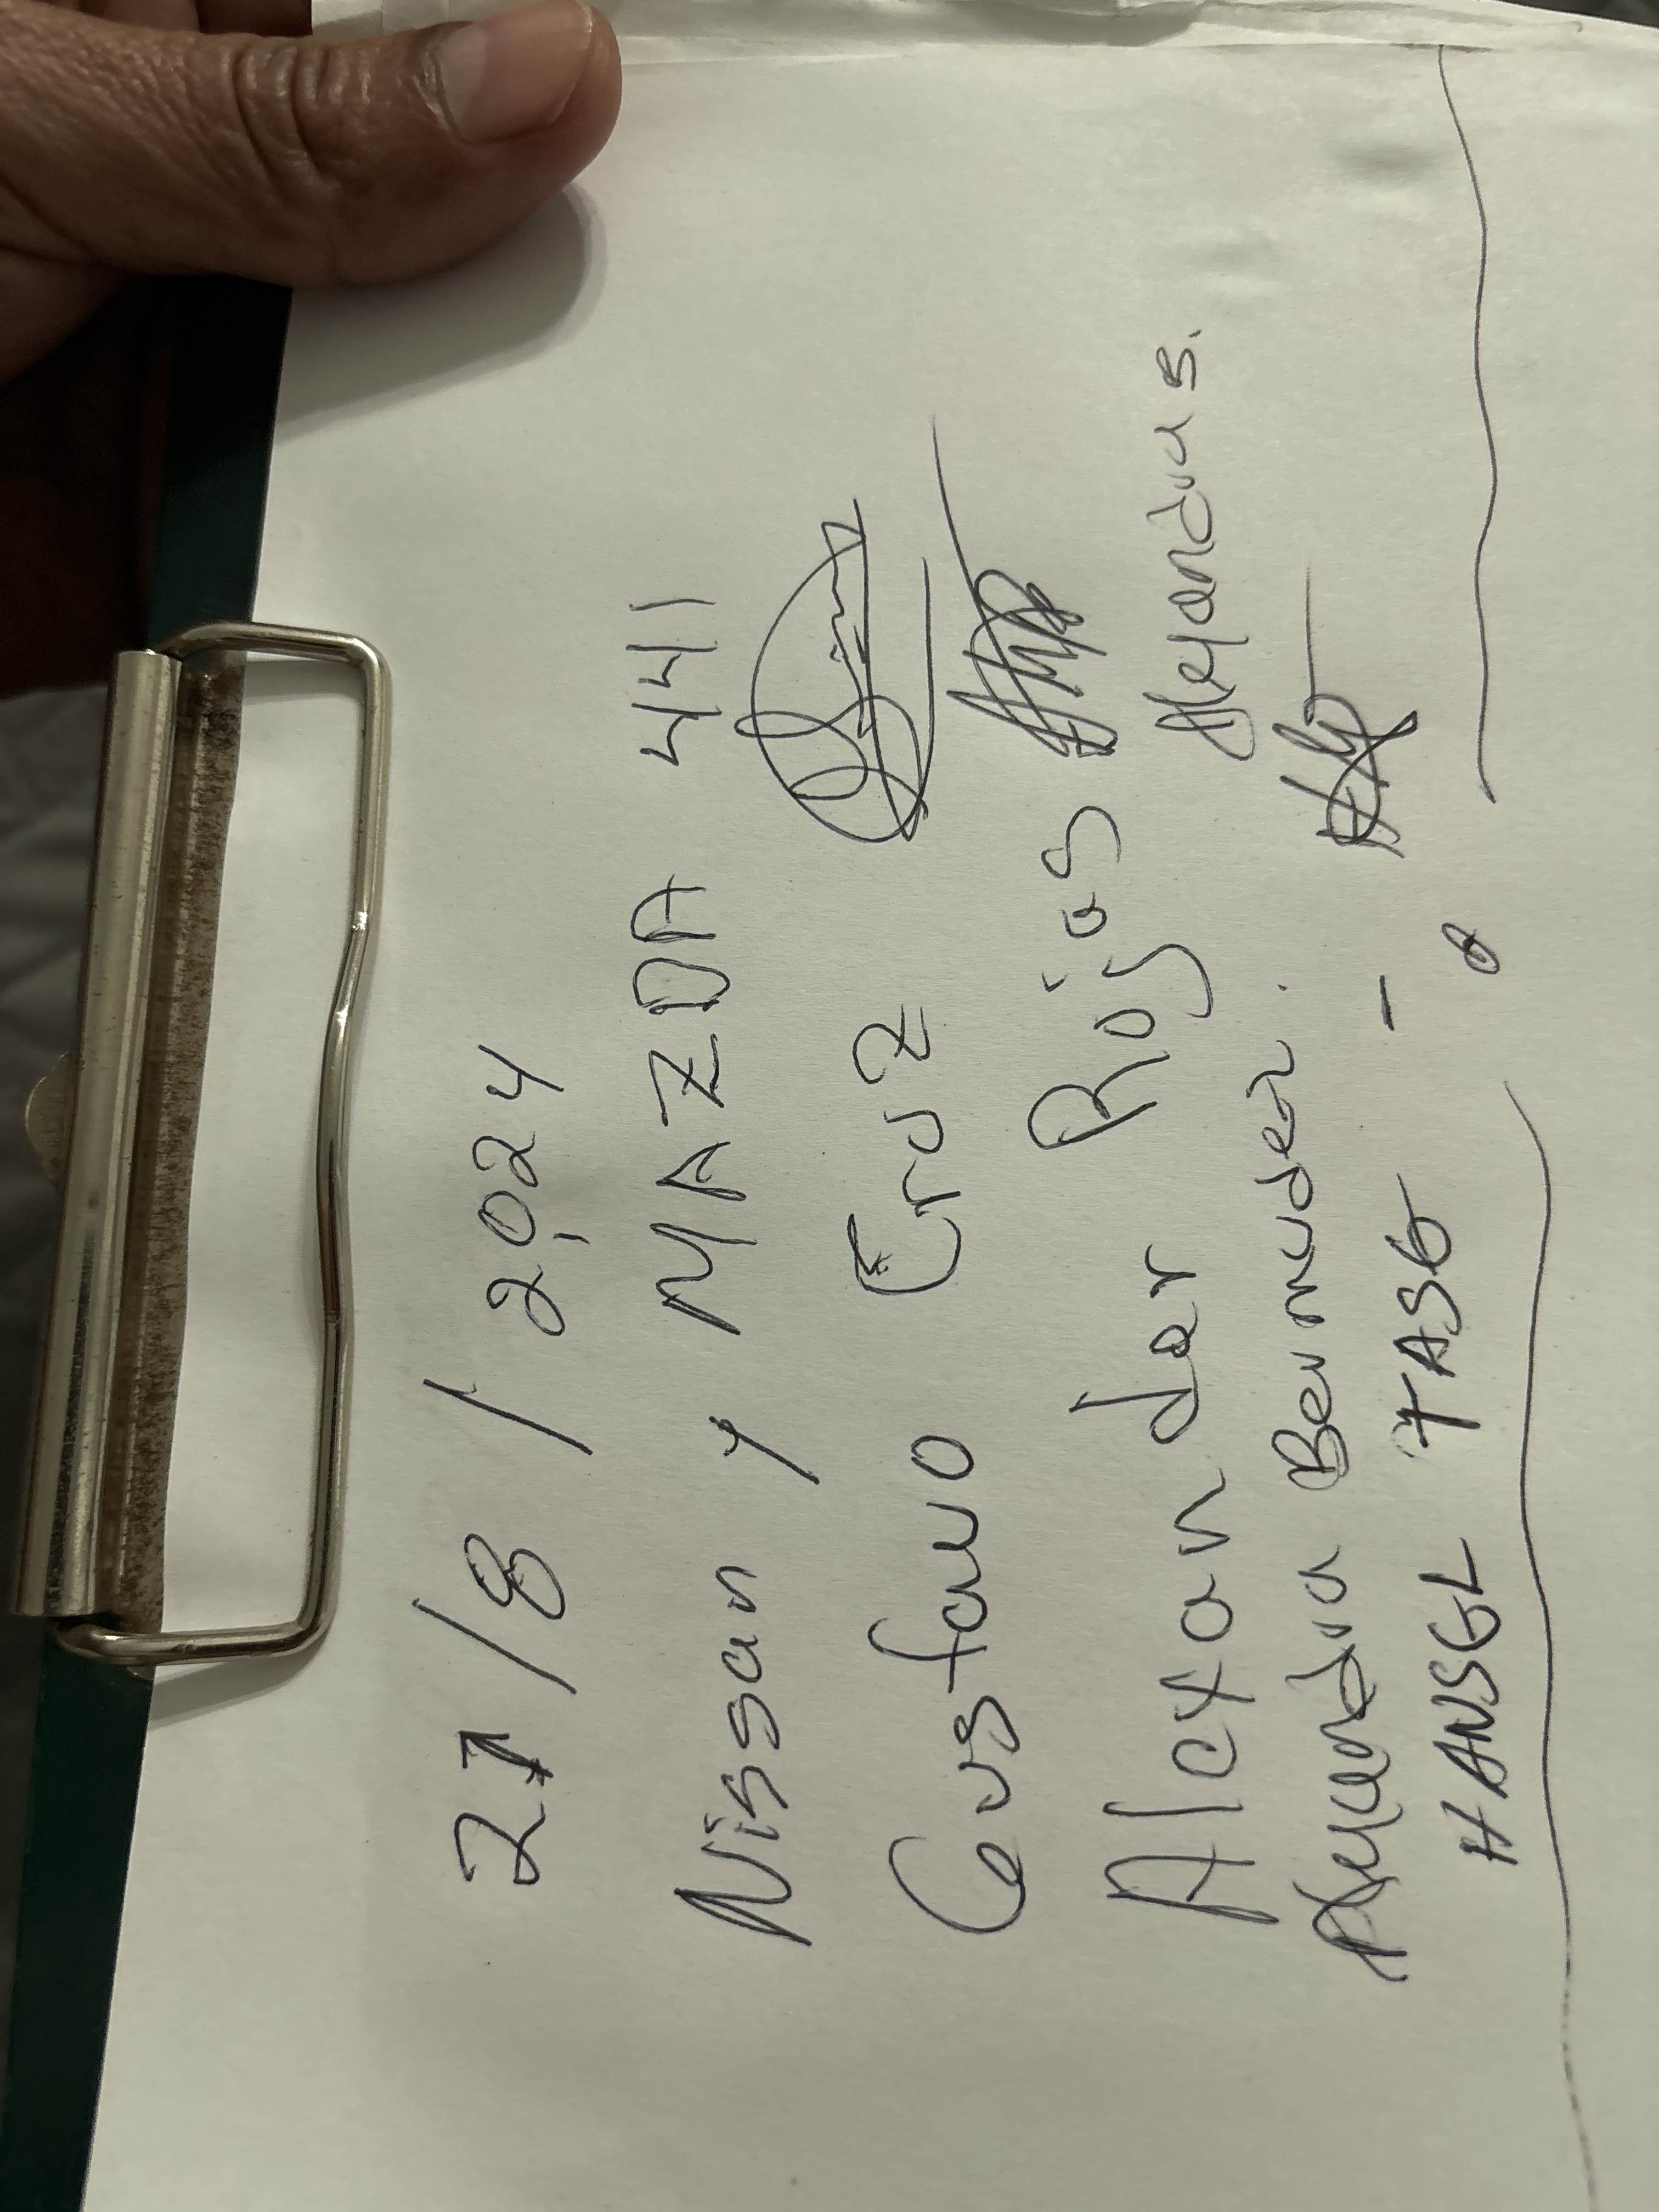 21/8/2024
Nissan y MAZDA 441
Gustavo Cruz
Alexander Rojas
Alejandra Bermudez. Alejandra B.
HANSGL TASG -